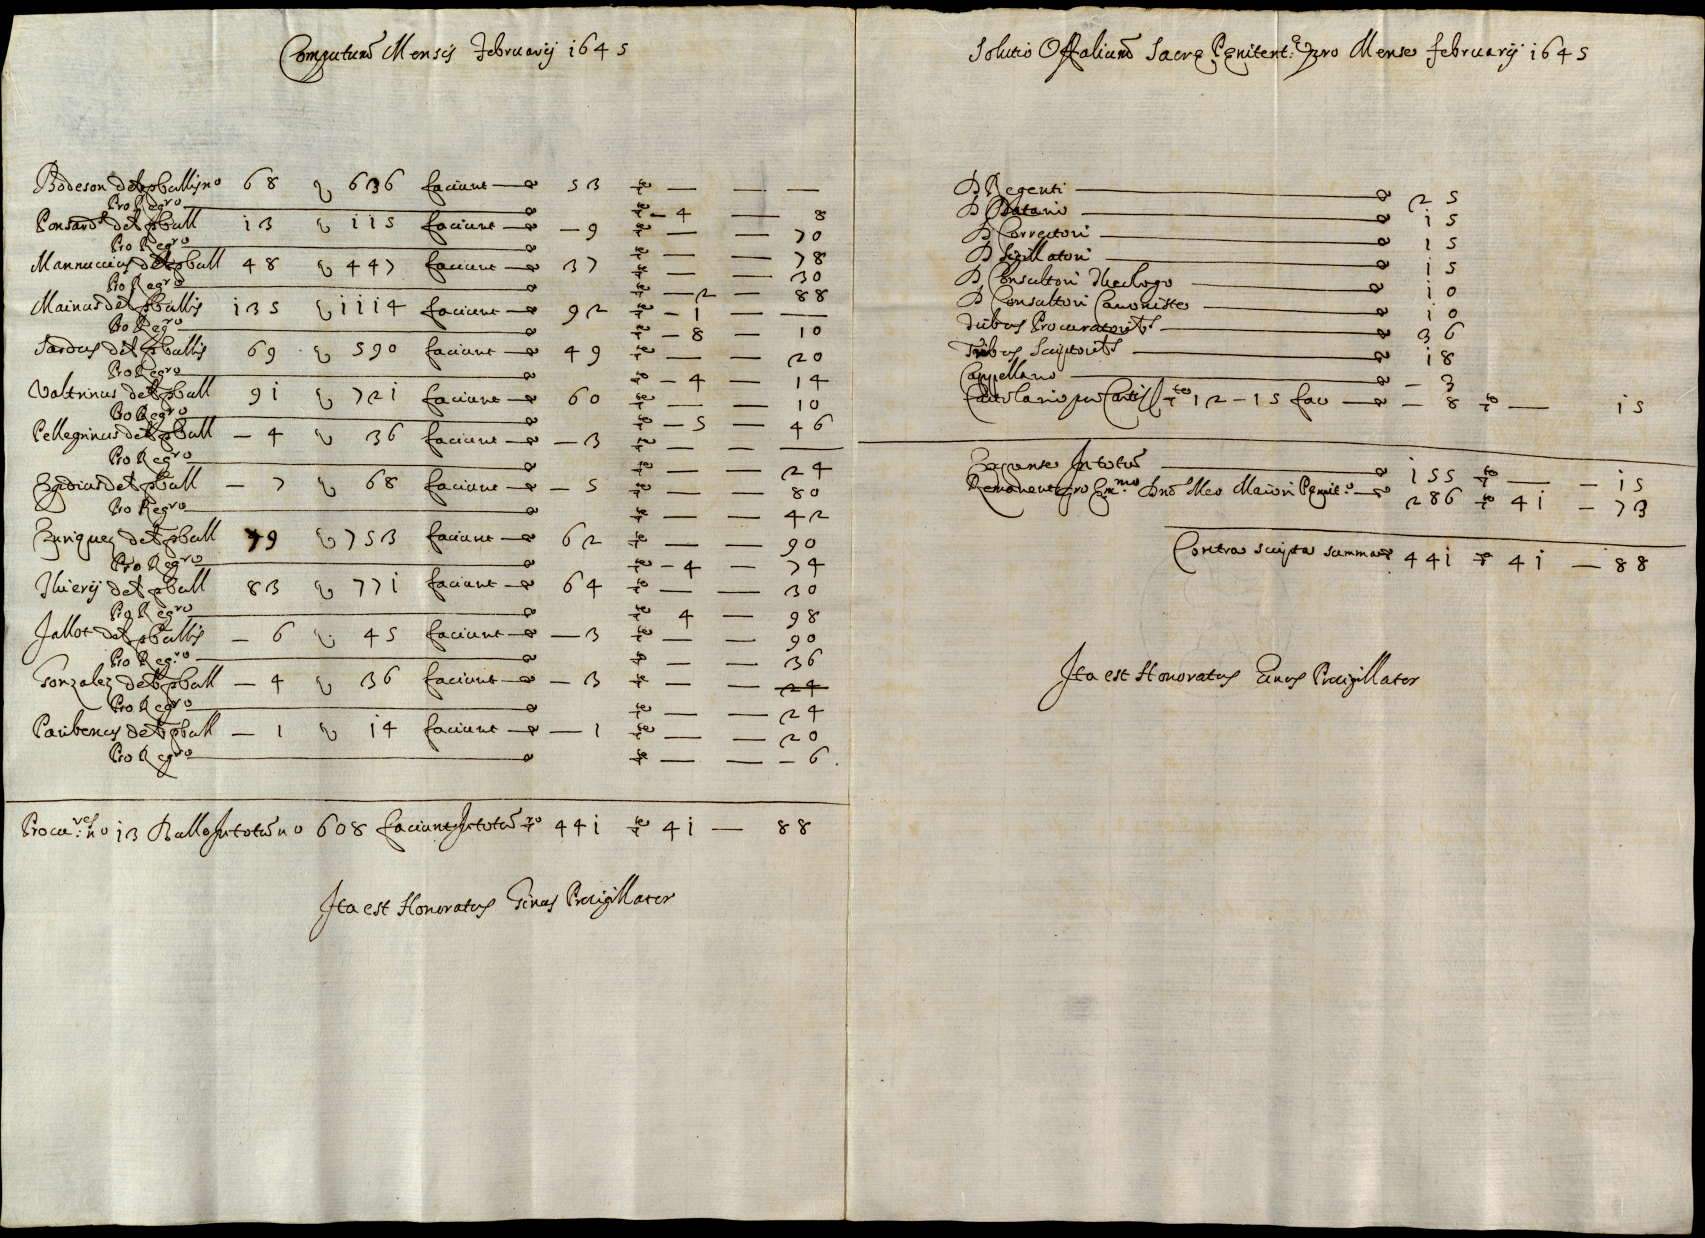 Computum Mensis Februarij 1645
Bodeson det pbullis no 68 q 636 faciunt — 53 — — —
Pro Regro — 4 — 8
Ponsard det pbull 13 q 115 faciunt — 9 — — 70
Pro Regro — — 78
Mannuccius det pbull 48 q 447 faciunt — 37 — — 30
Pro Regro — 2 — 88
Mainus det pbullis 135 q 1114 faciunt — 92 — 1 —
Pro Regro — 8 — 10
Sardus det pbullis 69 q 590 faciunt — 49 — — 20
Pro Regro — 4 — 14
Valtrinus det pbull 91 q 721 faciunt — 60 — — 10
Pro Regro — 5 — 46
Pellegrinus det pbull — 4 q 36 faciunt — 3 — — —
Pro Regro — — 24
Egidius det pbull — 7 q 68 faciunt — 5 — — 80
Pro Regro — — 42
Enriquez det pbull 79 q 753 faciunt — 62 — — 90
Pro Regro — 4 — 74
Thierij det pbull 83 q 771 faciunt — 64 — — 30
Pro Regro 4 — 98
Jallot det pbullis — 6 q 45 faciunt — 3 — — 90
Pro Regro — — 36
Gonzalez det pbull — 4 q 36 faciunt — 3 — — 24
Pro Regro — — 24
Paribenus det pbull — 1 q 14 faciunt — 1 — — 20
Pro Regro — — — 6
Procu:res no 13 Bulle Jn totum no 608 faciunt Jn totum 441 41 — 88
Jta est Honoratus Ginus Prosigillator
Solutio Offalium Sacre Penitent:e pro Mense februarij 1645
D Regenti — 25
D Datario — 15
D Correctori — 15
D Sigillatori — 15
D Consultori Theologo — 10
D Consultori Canonistę — 10
Duobus Procuratoribus — 36
Tribus Scriptoribus — 18
Cappellano — 3
Cartolario per Cartis 12 — 15 fac — 8 — 15
Expense Jn totum — 155 — — 15
Remanent pro Emmo Dno Meo Maiori Penit:o — 286 41 — 73
Contra scripta summa 441 41 — 88
Jta est Honoratus Ginus Prosigillator